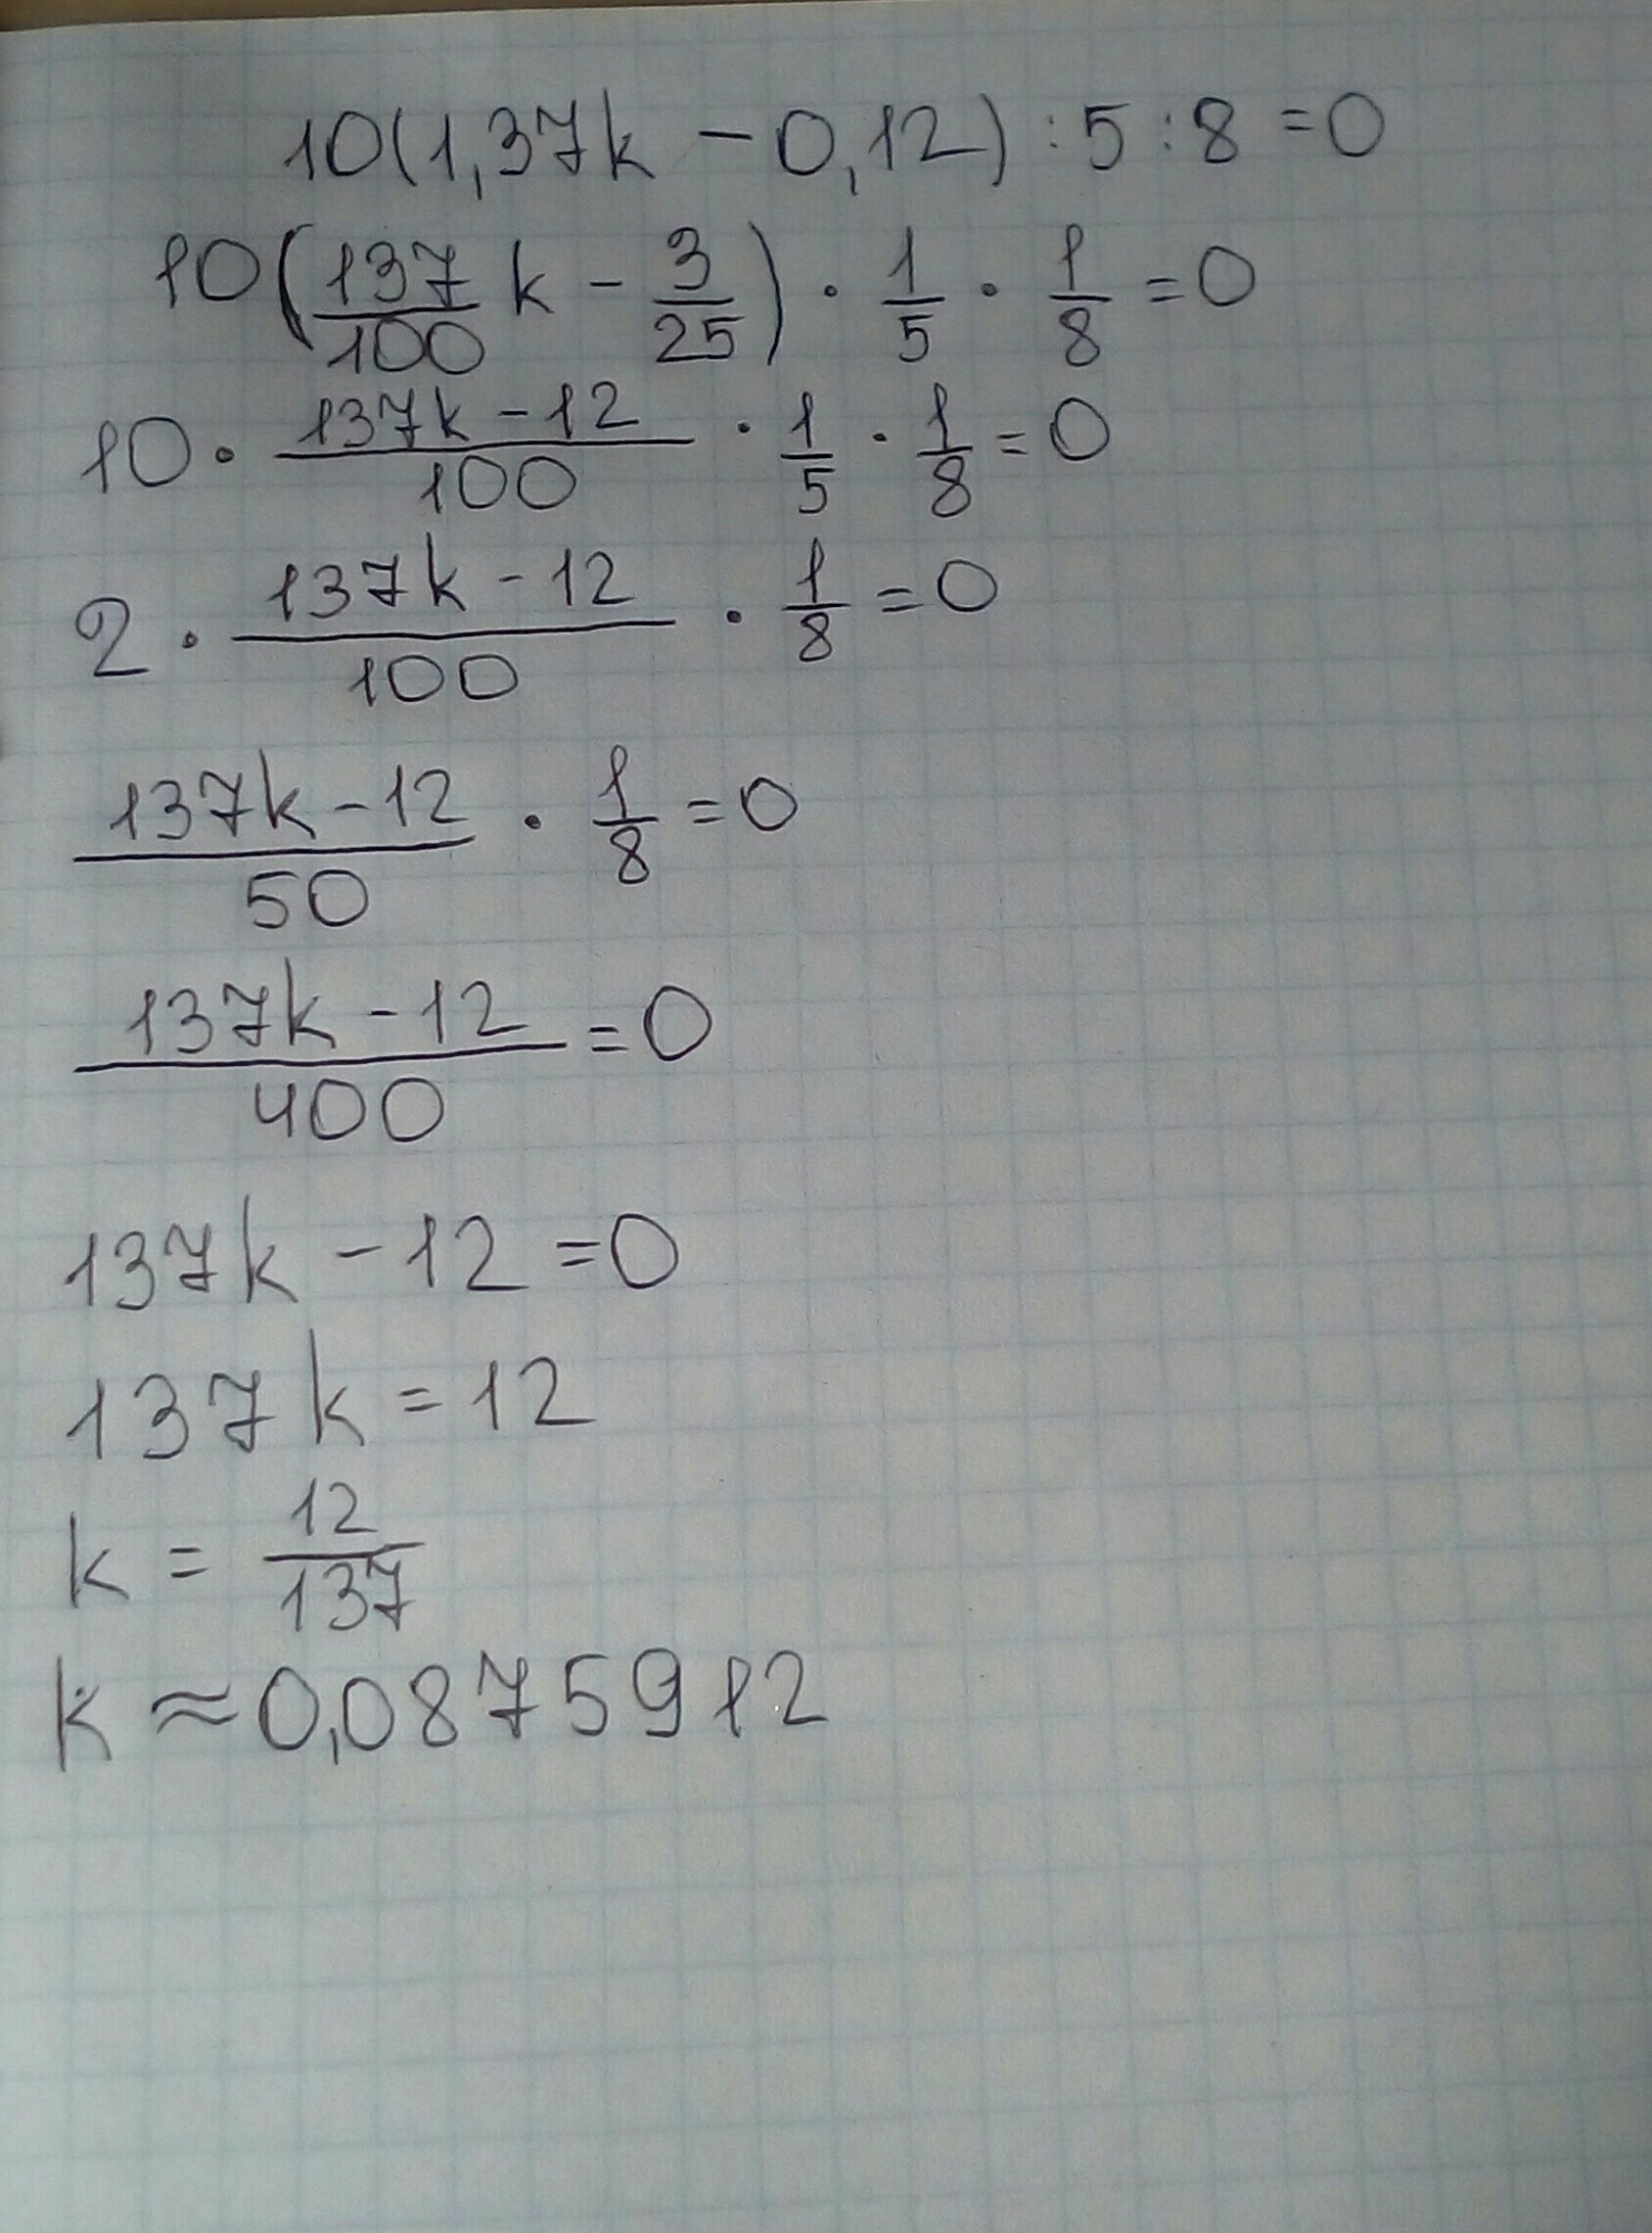 10(1,37k - 0,12) : 5 : 8 = 0
10(137/100 k - 3/25) · 1/5 · 1/8 = 0
10 · (137k - 12)/100 · 1/5 · 1/8 = 0
2 · (137k - 12)/100 · 1/8 = 0
(137k - 12)/50 · 1/8 = 0
(137k - 12)/400 = 0
137k - 12 = 0
137k = 12
k = 12/137
k ≈ 0,0875912